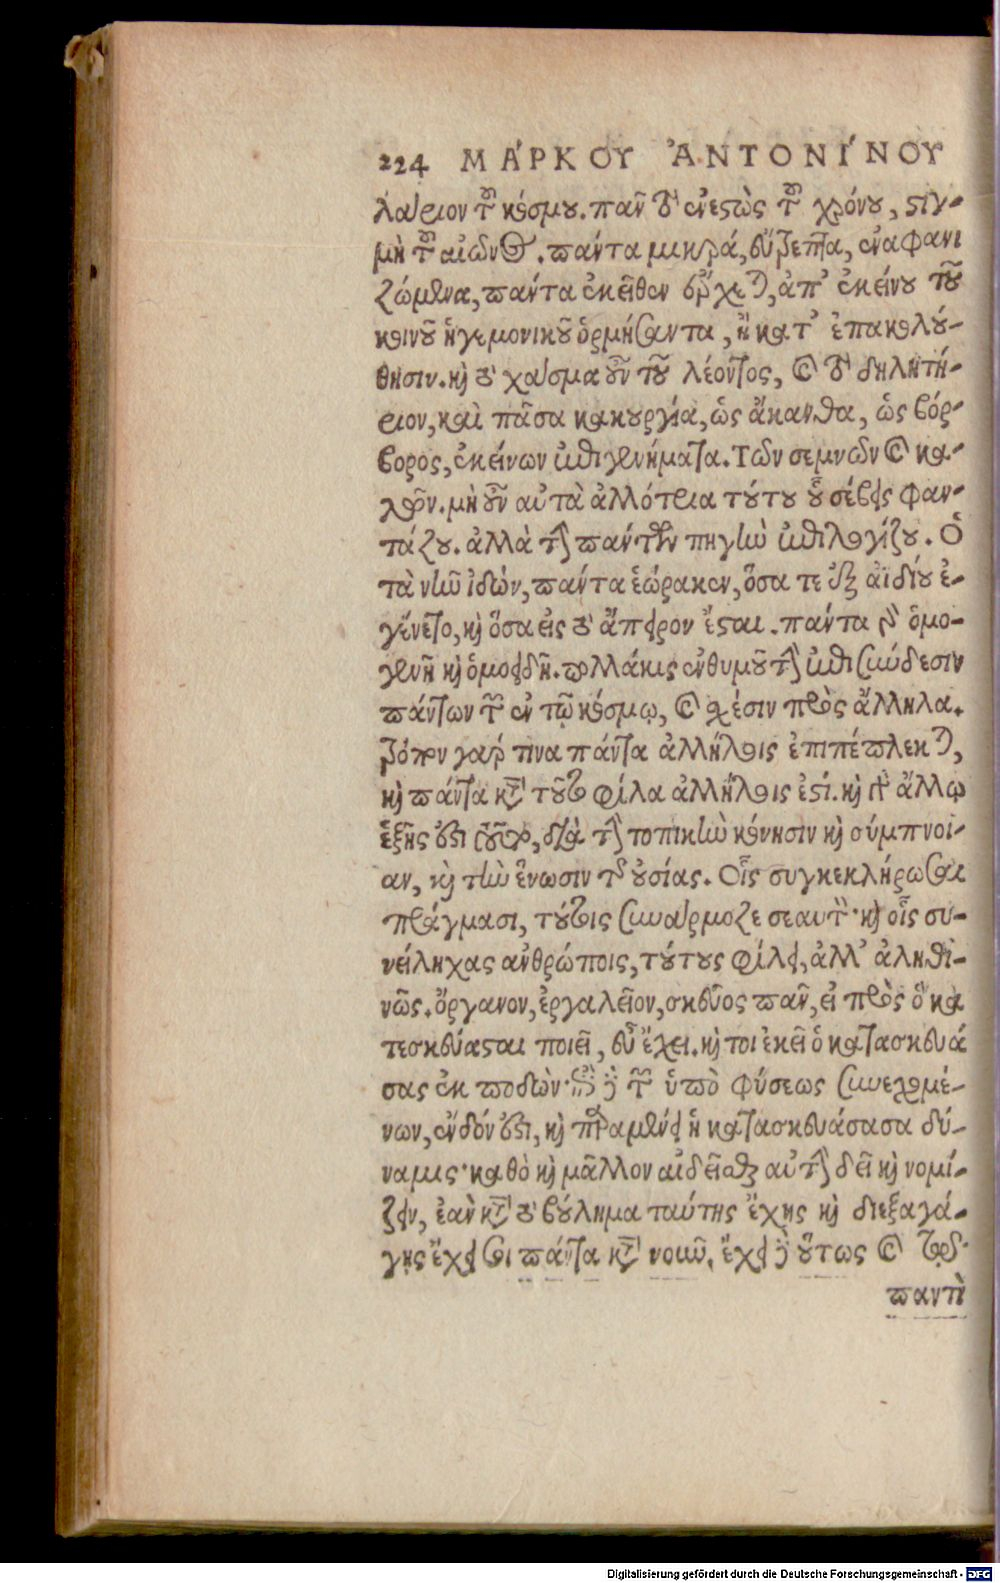 224 ΜΆΡΚΟΥ ἈΝΤΟΝΊΝΟΥ
λάριον τοῦ κόσμου. πᾶν τὸ ἐνεστὼς τοῦ χρόνου, στιγ-
μὴ τοῦ αἰῶνος. πάντα μικρά, εὔτρεπτα, ἐναφανι
ζόμενα, πάντα ἐκεῖθεν ἔρχεται, ἀπ' ἐκείνου τοῦ
κοινοῦ ἡγεμονικοῦ ὁρμήσαντα, ἢ κατ' ἐπακολού-
θησιν. καὶ τὸ χάσμα οὖν τοῦ λέοντος, καὶ τὸ δηλητή-
ριον, καὶ πᾶσα κακουργία, ὡς ἄκανθα, ὡς βόρ-
βορος, ἐκείνων ἐπιγεννήματα. Τῶν σεμνῶν καὶ κα-
λῶν. μὴ οὖν αὐτὰ ἀλλότρια τούτου οὗ σέβεις φαν-
τάζου. ἀλλὰ τὴν πάντων πηγὴν ἐπιλογίζου. Ὁ
τὰ νῦν ἰδὼν, πάντα ἑώρακεν, ὅσα τε ἐξ ἀϊδίου ἐ-
γένετο, καὶ ὅσα εἰς τὸ ἄπειρον ἔσται. πάντα γὰρ ὁμο-
γενῆ καὶ ὁμοειδῆ. πολλάκις ἐνθυμοῦ τὴν ἐπισύνδεσιν
πάντων τῶν ἐν τῷ κόσμῳ, καὶ χέσιν πρὸς ἄλληλα.
τρόπον γάρ τινα πάντα ἀλλήλοις ἐπιπέπλεκται,
καὶ πάντα κατὰ τοῦτο φίλα ἀλλήλοις ἐστί. καὶ γὰρ ἄλλῳ
ἑξῆς ἐστι τοῦτο, διὰ τὴν τοπικὴν κόνησιν καὶ σύμπνοι-
αν, καὶ τὴν ἕνωσιν τῆς οὐσίας. Οἷς συγκεκλήρωσαι
πράγμασι, τούτοις συνάρμοζε σεαυτὸν· καὶ οἷς συ-
νείληχας ἀνθρώποις, τούτους φίλει, ἀλλ' ἀληθι-
νῶς. ὄργανον, ἐργαλεῖον, σκεῦος πᾶν, εἰ πρὸς ὃ κα
τεσκεύασται ποιεῖ, εὖ ἔχει. καὶ τοι ἐκεῖ ὁ κατασκευά
σας ἐκ ποδῶν· ἐπὶ δὲ τῶν ὑπὸ φύσεως συνεχομέ-
νων, ἔνδον ἐστι, καὶ παραμένει ἡ κατασκευάσασα δύ-
ναμις· καθὸ καὶ μᾶλλον αἰδεῖσθαι αὐτὴν δεῖ καὶ νομί-
ζειν, ἐὰν κατὰ τὸ βούλημα ταύτης ἔχῃς καὶ διεξαγά-
γῃς ἔχειν σοι πάντα κατὰ νοῦν. ἔχει δὲ οὕτως καὶ τῷ
παντὶ
Digitalisierung gefördert durch die Deutsche Forschungsgemeinschaft - DFG